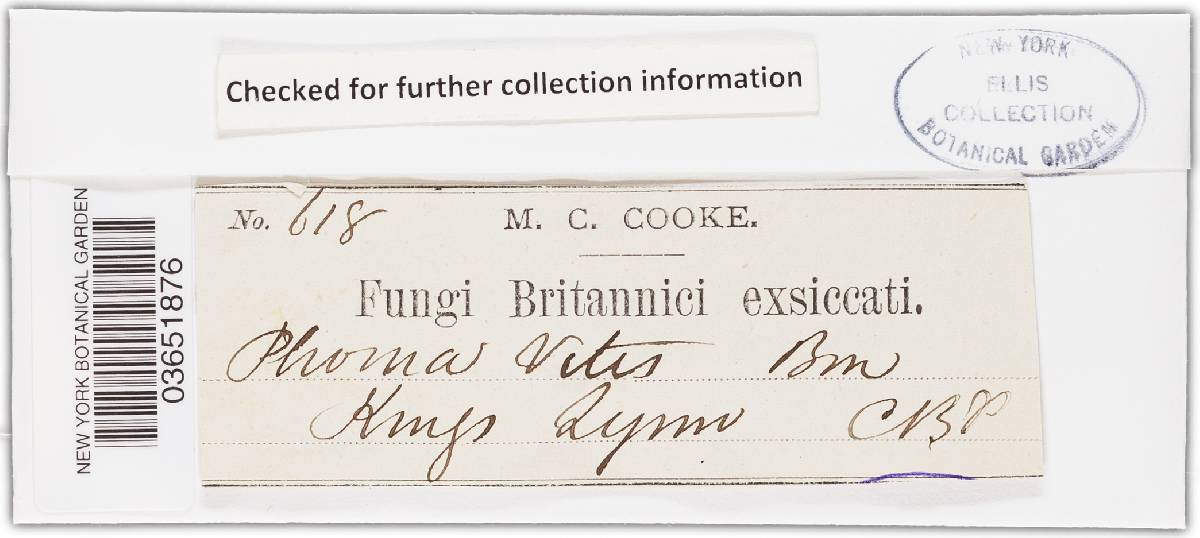 Checked for further collection information
NEW YORK
ELLIS
COLLECTION
BOTANICAL GARDEN
NEW YORK BOTANICAL GARDEN
03651876
No. 618
M. C. COOKE.
Fungi Britannici exsiccati.
Phoma Vitis Bon
Kings Lynn CBP